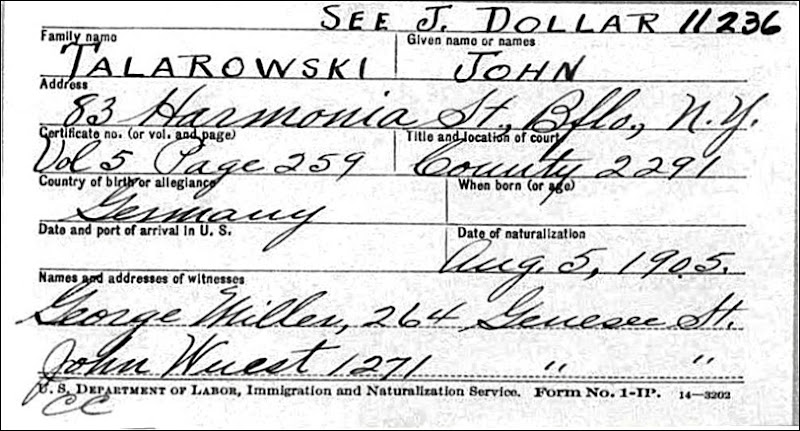 SEE J. DOLLAR 11236
Family name Given name or names
TALAROWSKI JOHN
Address
83 Harmonia St., Bflo., N.Y.
Certificate no. (or vol. and page) Title and location of court
Vol 5 Page 259 County 2291
Country of birth or allegiance When born (or age)
Germany
Date and port of arrival in U. S. Date of naturalization
Aug. 5, 1905.
Names and addresses of witnesses
George Miller, 264 Genesee St.
John Wuest 1271 " "
U. S. DEPARTMENT OF LABOR, Immigration and Naturalization Service. Form No. 1-IP. 14—3202
CC